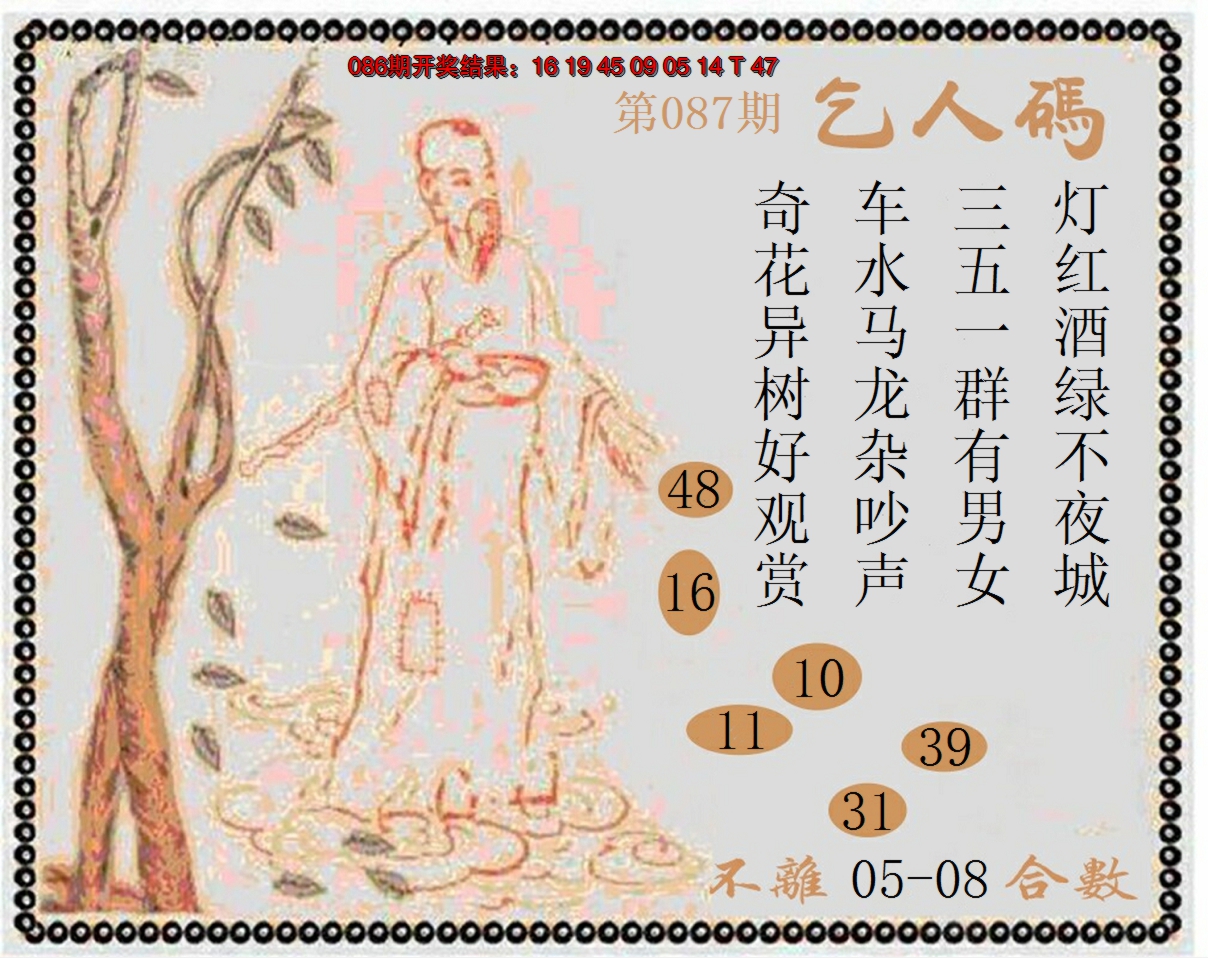 086期开奖结果：16 19 45 09 05 14 T 47
第087期 乞人碼
灯红酒绿不夜城
三五一群有男女
车水马龙杂吵声
奇花异树好观赏
48
16
10
11
39
31
不離 05-08 合數